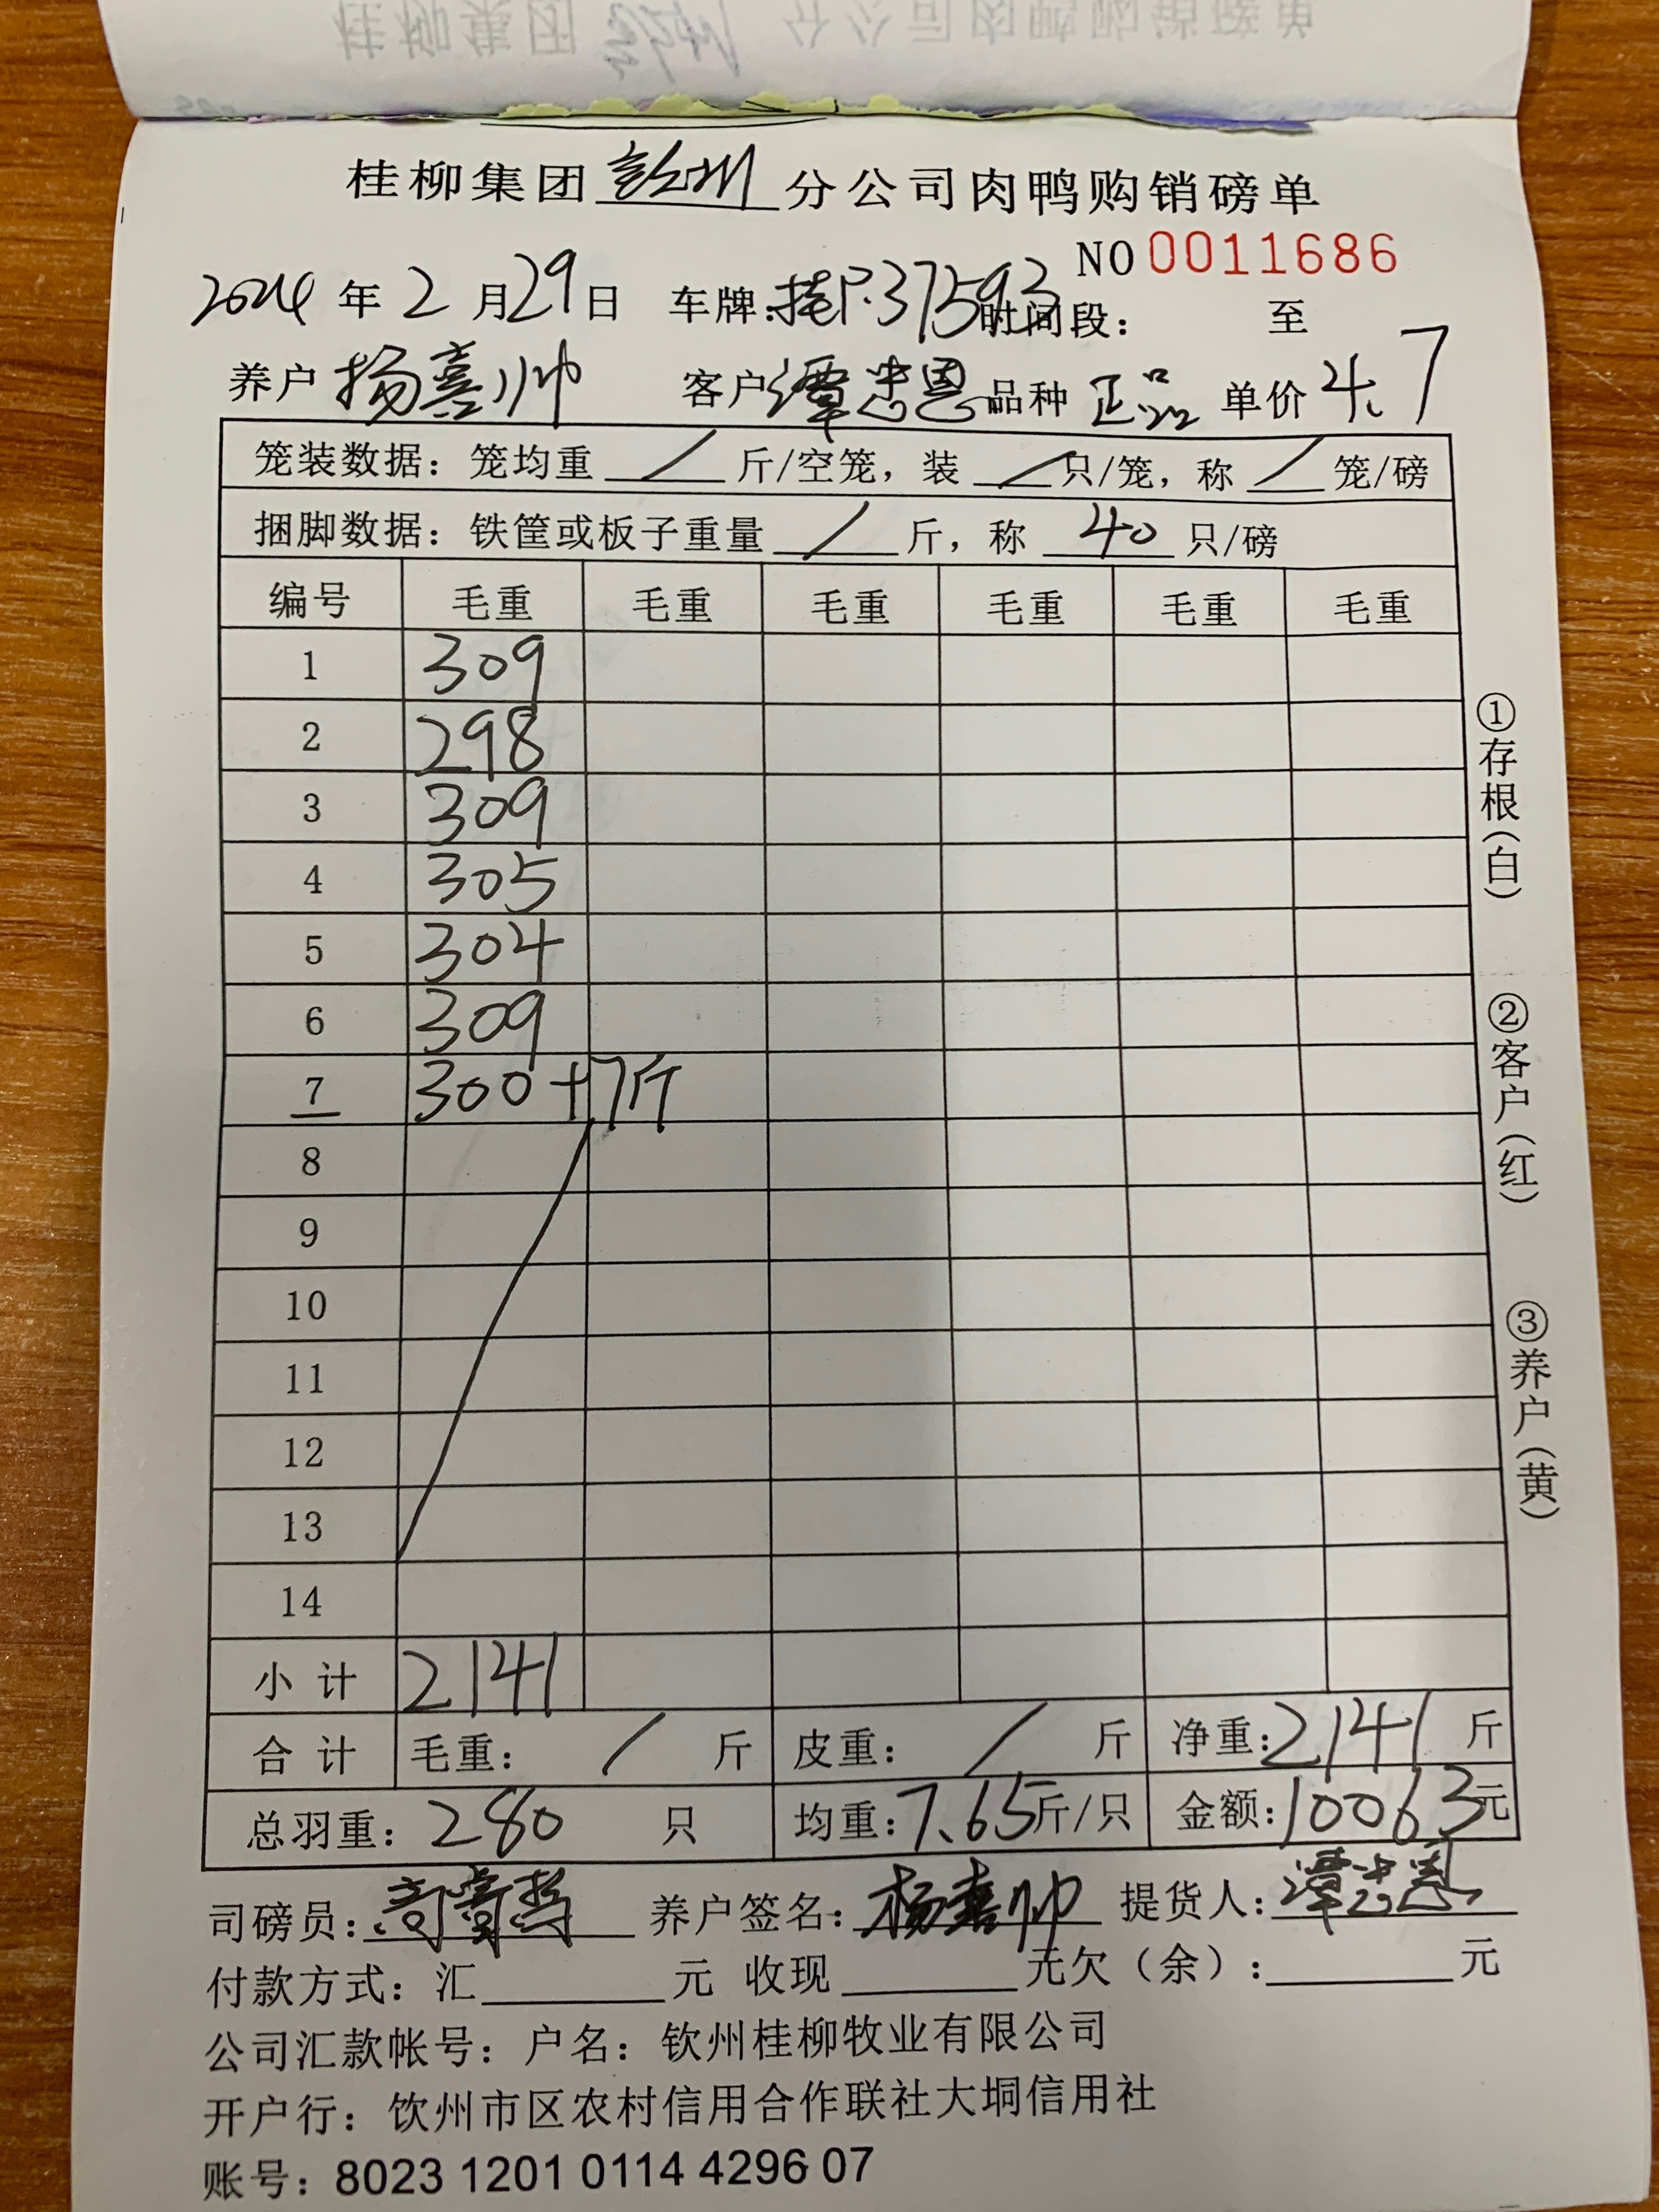 桂柳集团彭州分公司肉鸭购销磅单
NO 0011686
2024年2月29日 车牌:桂P.37593 时间段: 至
养户 杨喜帅 客户 谭忠恩 品种 正品 单价 4.7
笼装数据: 笼均重 / 斤/空笼, 装 / 只/笼, 称 / 笼/磅
捆脚数据: 铁筐或板子重量 / 斤, 称 40 只/磅
编号 毛重 毛重 毛重 毛重 毛重 毛重
1 309
2 298
3 309
4 305
5 304
6 309
7 300+7斤
8
9
10
11
12
13
14
小计 2141
合计 毛重: / 斤 皮重: / 斤 净重: 2141 斤
总羽重: 280 只 均重: 7.65斤/只 金额: 10063元
司磅员: 养户签名: 杨喜帅 提货人: 谭忠恩
付款方式: 汇 元 收现 元欠(余): 元
公司汇款帐号: 户名: 钦州桂柳牧业有限公司
开户行: 钦州市区农村信用合作联社大垌信用社
账号: 8023 1201 0114 4296 07
①存根(白)
②客户(红)
③养户(黄)